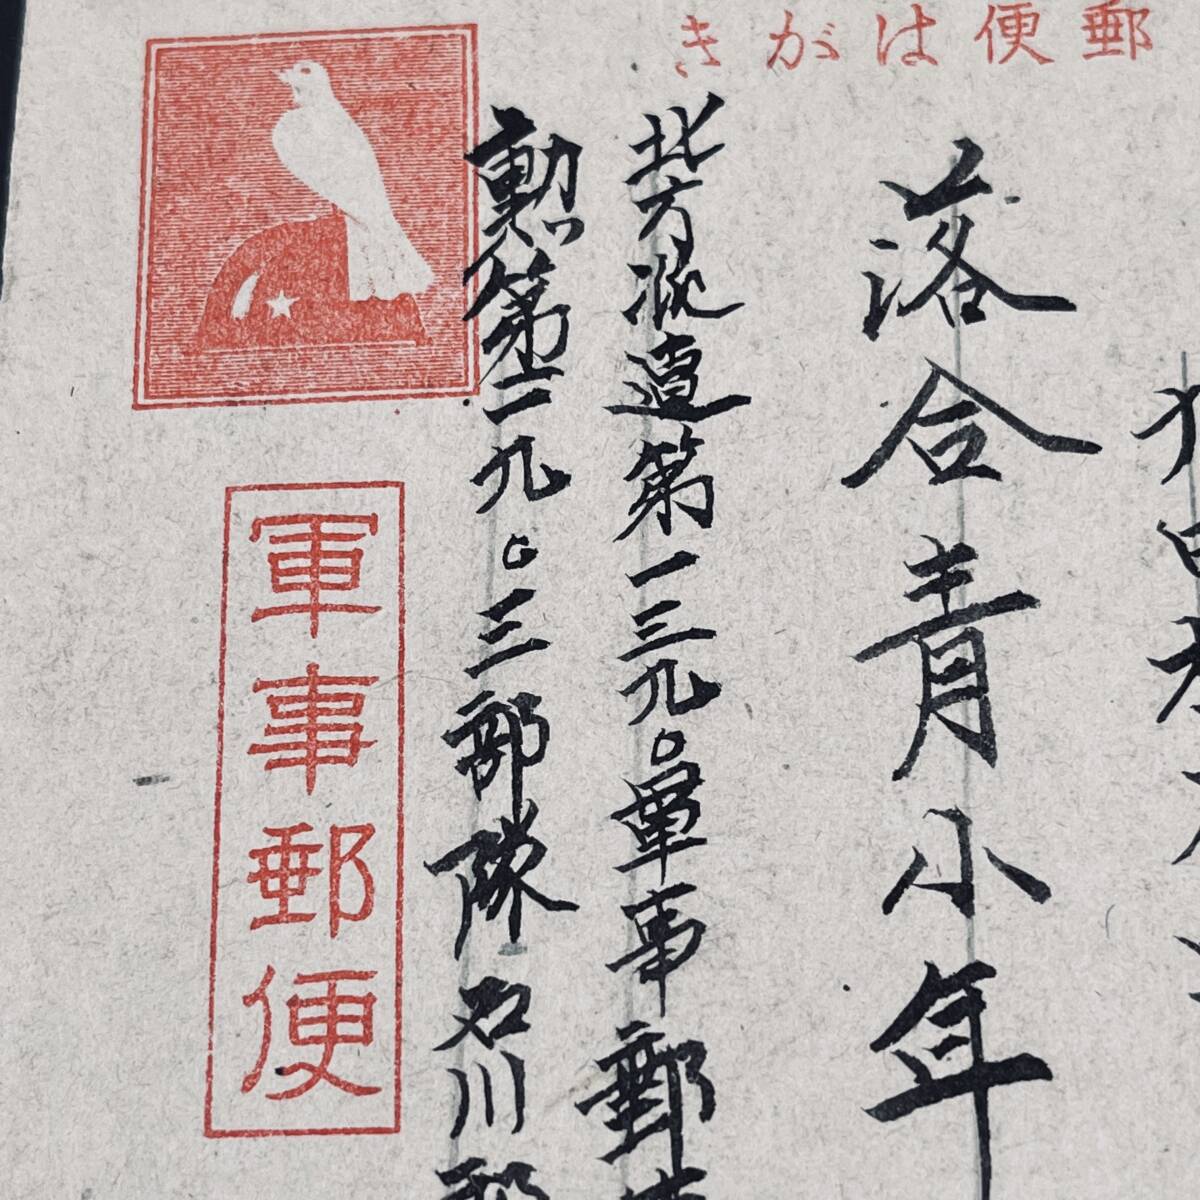 郵便はがき
落合青小年
北方派遣第一三九〇軍事郵
勲第二九〇三部隊石川部
軍事郵便